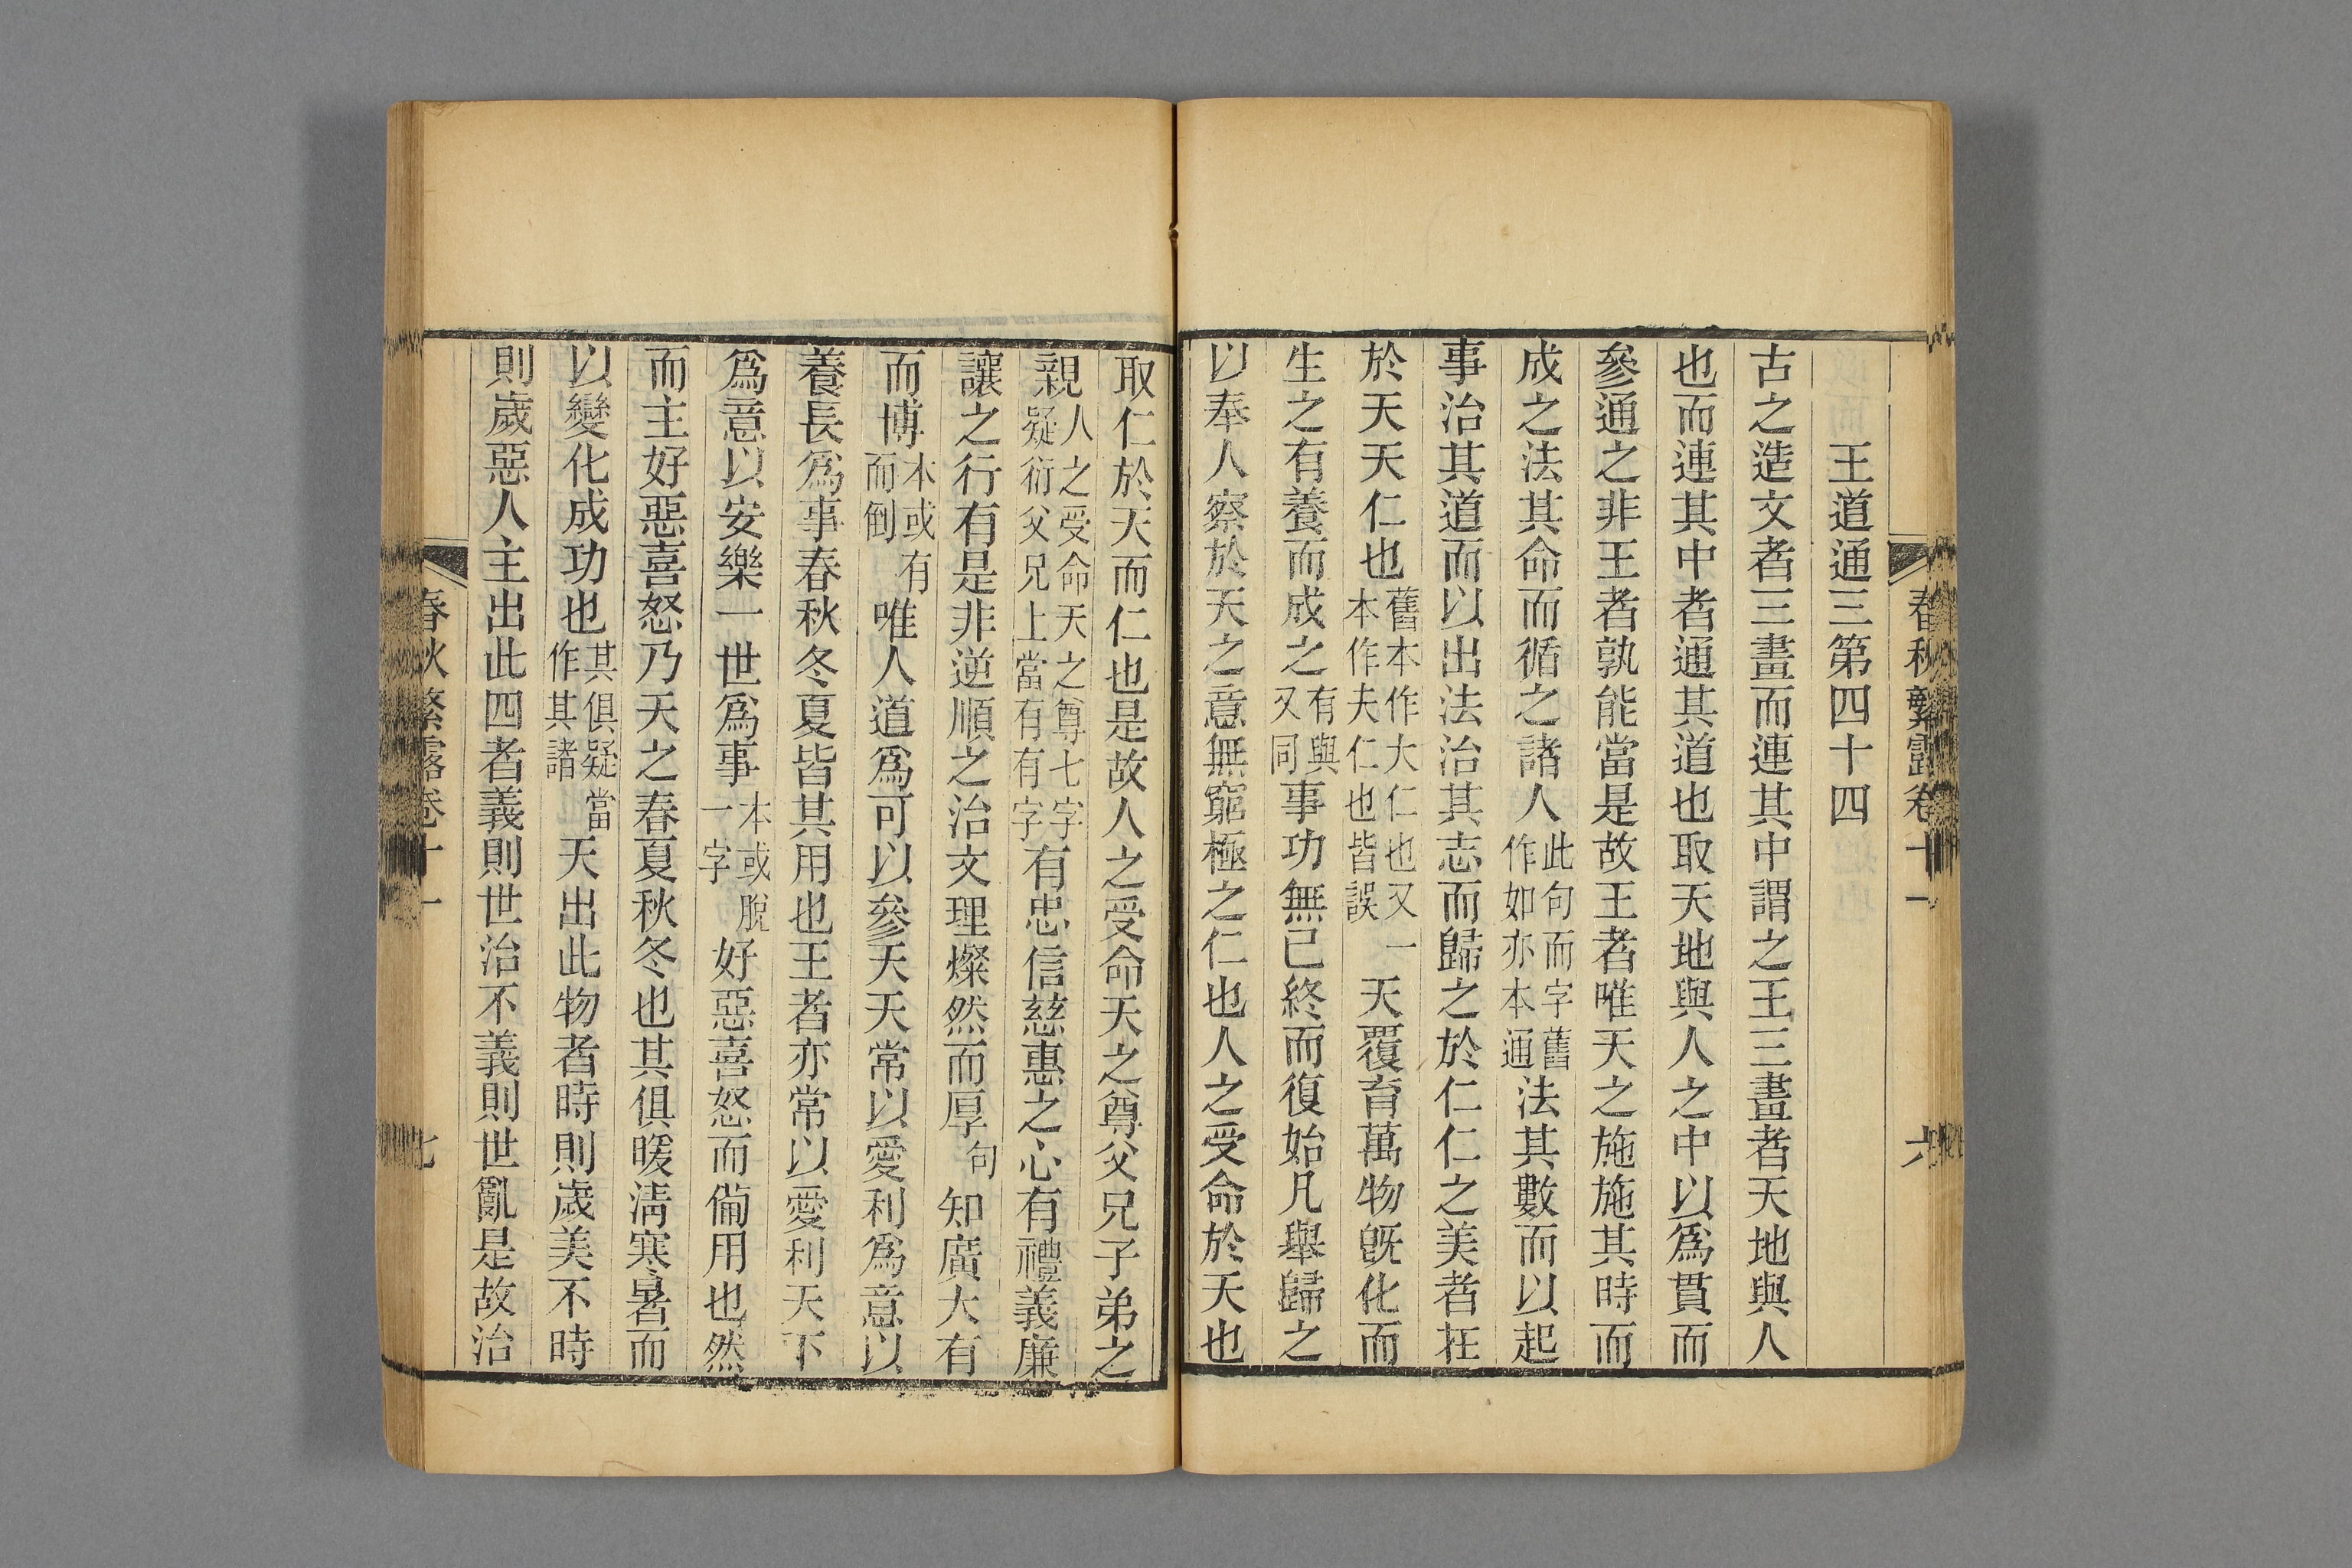 春秋繁露卷十一 六
王道通三第四十四
古之造文者三畫而連其中謂之王三畫者天地與人
也而連其中者通其道也取天地與人之中以爲貫而
參通之非王者孰能當是故王者唯天之施施其時而
成之法其命而循之諸人此句而字舊作如亦本通法其數而以起
事治其道而以出法治其志而歸之於仁仁之美者在
於天天仁也舊本作大仁也又一本作夫仁也皆誤天覆育萬物旣化而
生之有養而成之有與又同事功無已終而復始凡舉歸之
以奉人察於天之意無窮極之仁也人之受命於天也
取仁於天而仁也是故人之受命天之尊父兄子弟之
親人之受命天之尊七字疑衍父兄上當有有字有忠信慈惠之心有禮義廉
讓之行有是非逆順之治文理燦然而厚句知廣大有
而博本或有而倒唯人道爲可以參天天常以愛利爲意以
養長爲事春秋冬夏皆其用也王者亦常以愛利天下
爲意以安樂一世爲事本或脫一字好惡喜怒而備用也然
而主好惡喜怒乃天之春夏秋冬也其俱暖淸寒暑而
以變化成功也其俱疑當作其諸天出此物者時則歲美不時
則歲惡人主出此四者義則世治不義則世亂是故治
春秋繁露卷十一 七